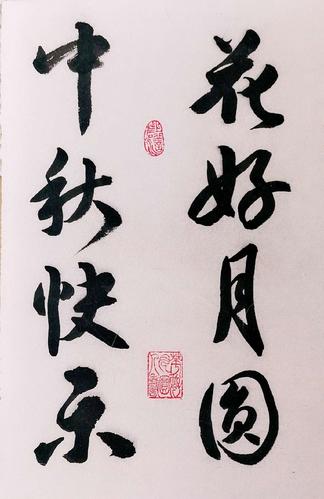 花好月圆
中秋快乐